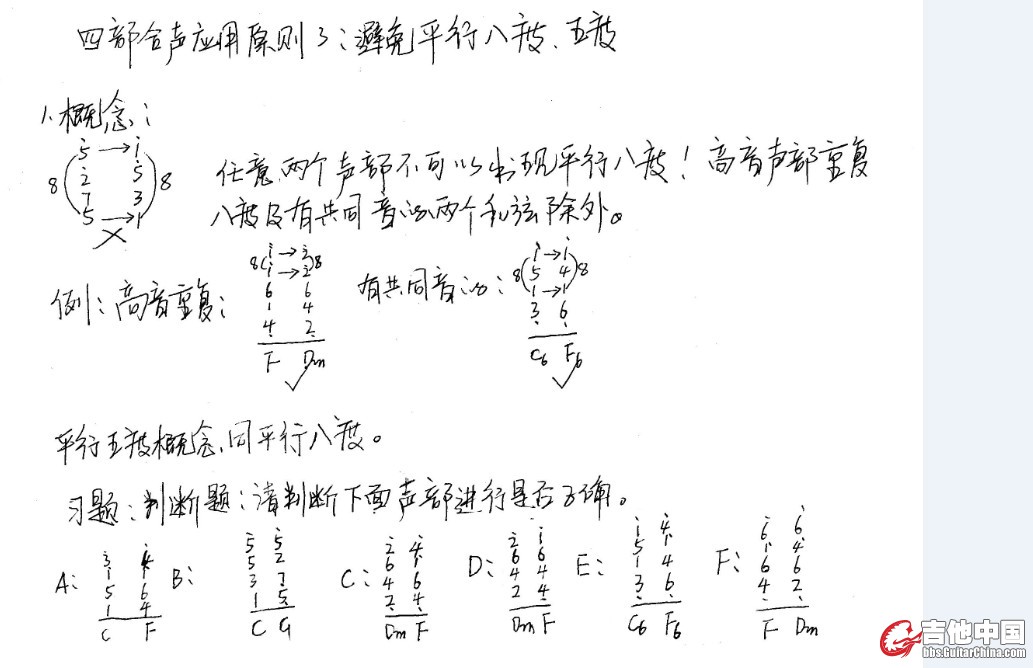 四部合声应用原则3:避免平行八度、五度
1、概念:
5→1
2 5
7 3
5→1
8 8
×
任意两个声部不可以出现平行八度!高音声部重复
八度及有共同音的两个和弦除外。
例:高音重复:
1→2
1→2
6 6
1 4
4 2
8 8
F Dm
有共同音的:
1→1
5 4
1→1
3 6
8 8
C6 F6
平行五度概念同平行八度。
习题:判断题:请判断下面声部进行是否正确。
A:
3 4
1 1
5 6
1 4
C F
B:
5 5
5 2
3 7
1 5
C G
C:
2 4
6 1
4 6
2 4
Dm F
D:
2 1
6 6
4 4
2 4
Dm F
E:
1 4
5 1
1 4
3 6
C6 F6
F:
6 6
1 4
6 6
4 2
F Dm
吉他中国
bbs.GuitarChina.com